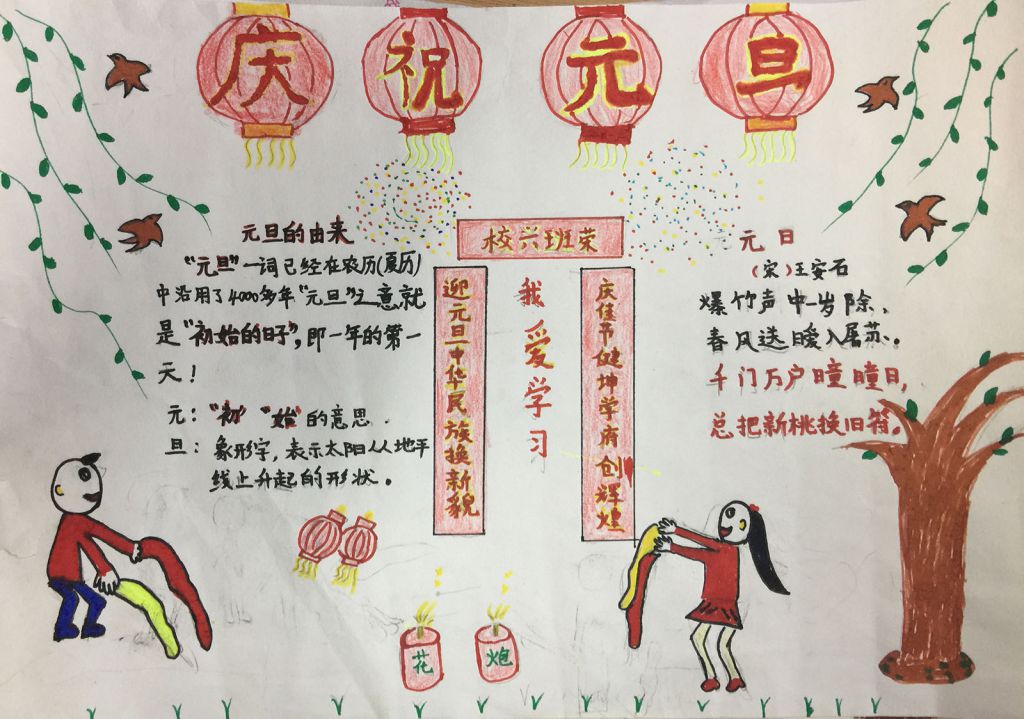 庆祝元旦
元旦的由来
"元旦"一词已经在农历(夏历)
中沿用了4000多年"元旦"之意就
是"初始的日子",即一年的第一
天!
元:"初""始"的意思.
旦:象形字,表示太阳从地平
线上升起的形状。
校兴班荣
迎元旦中华民族换新貌
我爱学习
庆佳节健坤学府创辉煌
元日
(宋)王安石
爆竹声中一岁除、
春风送暖入屠苏。
千门万户曈曈日,
总把新桃换旧符。
花
炮